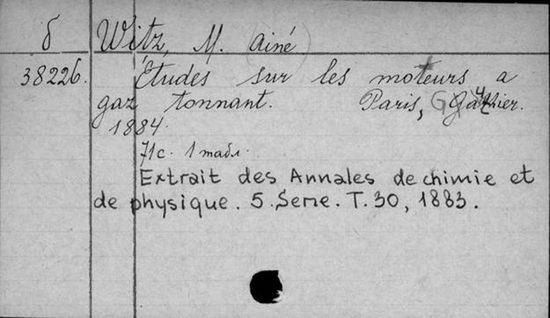 б Witz, M. ainé
38226. Études sur les moteurs a
gaz tonnant. Paris,
1884.
71c. 1
Extrait des Annales de chimie et
de physique. 5. Serie. T. 30, 1883.